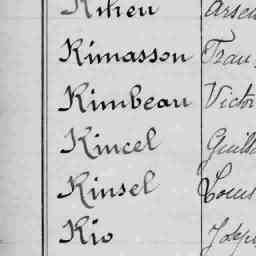 Rimasson
Rimbeau Victo
Rincel Guill
Rinsel Louis
Rio Joseph